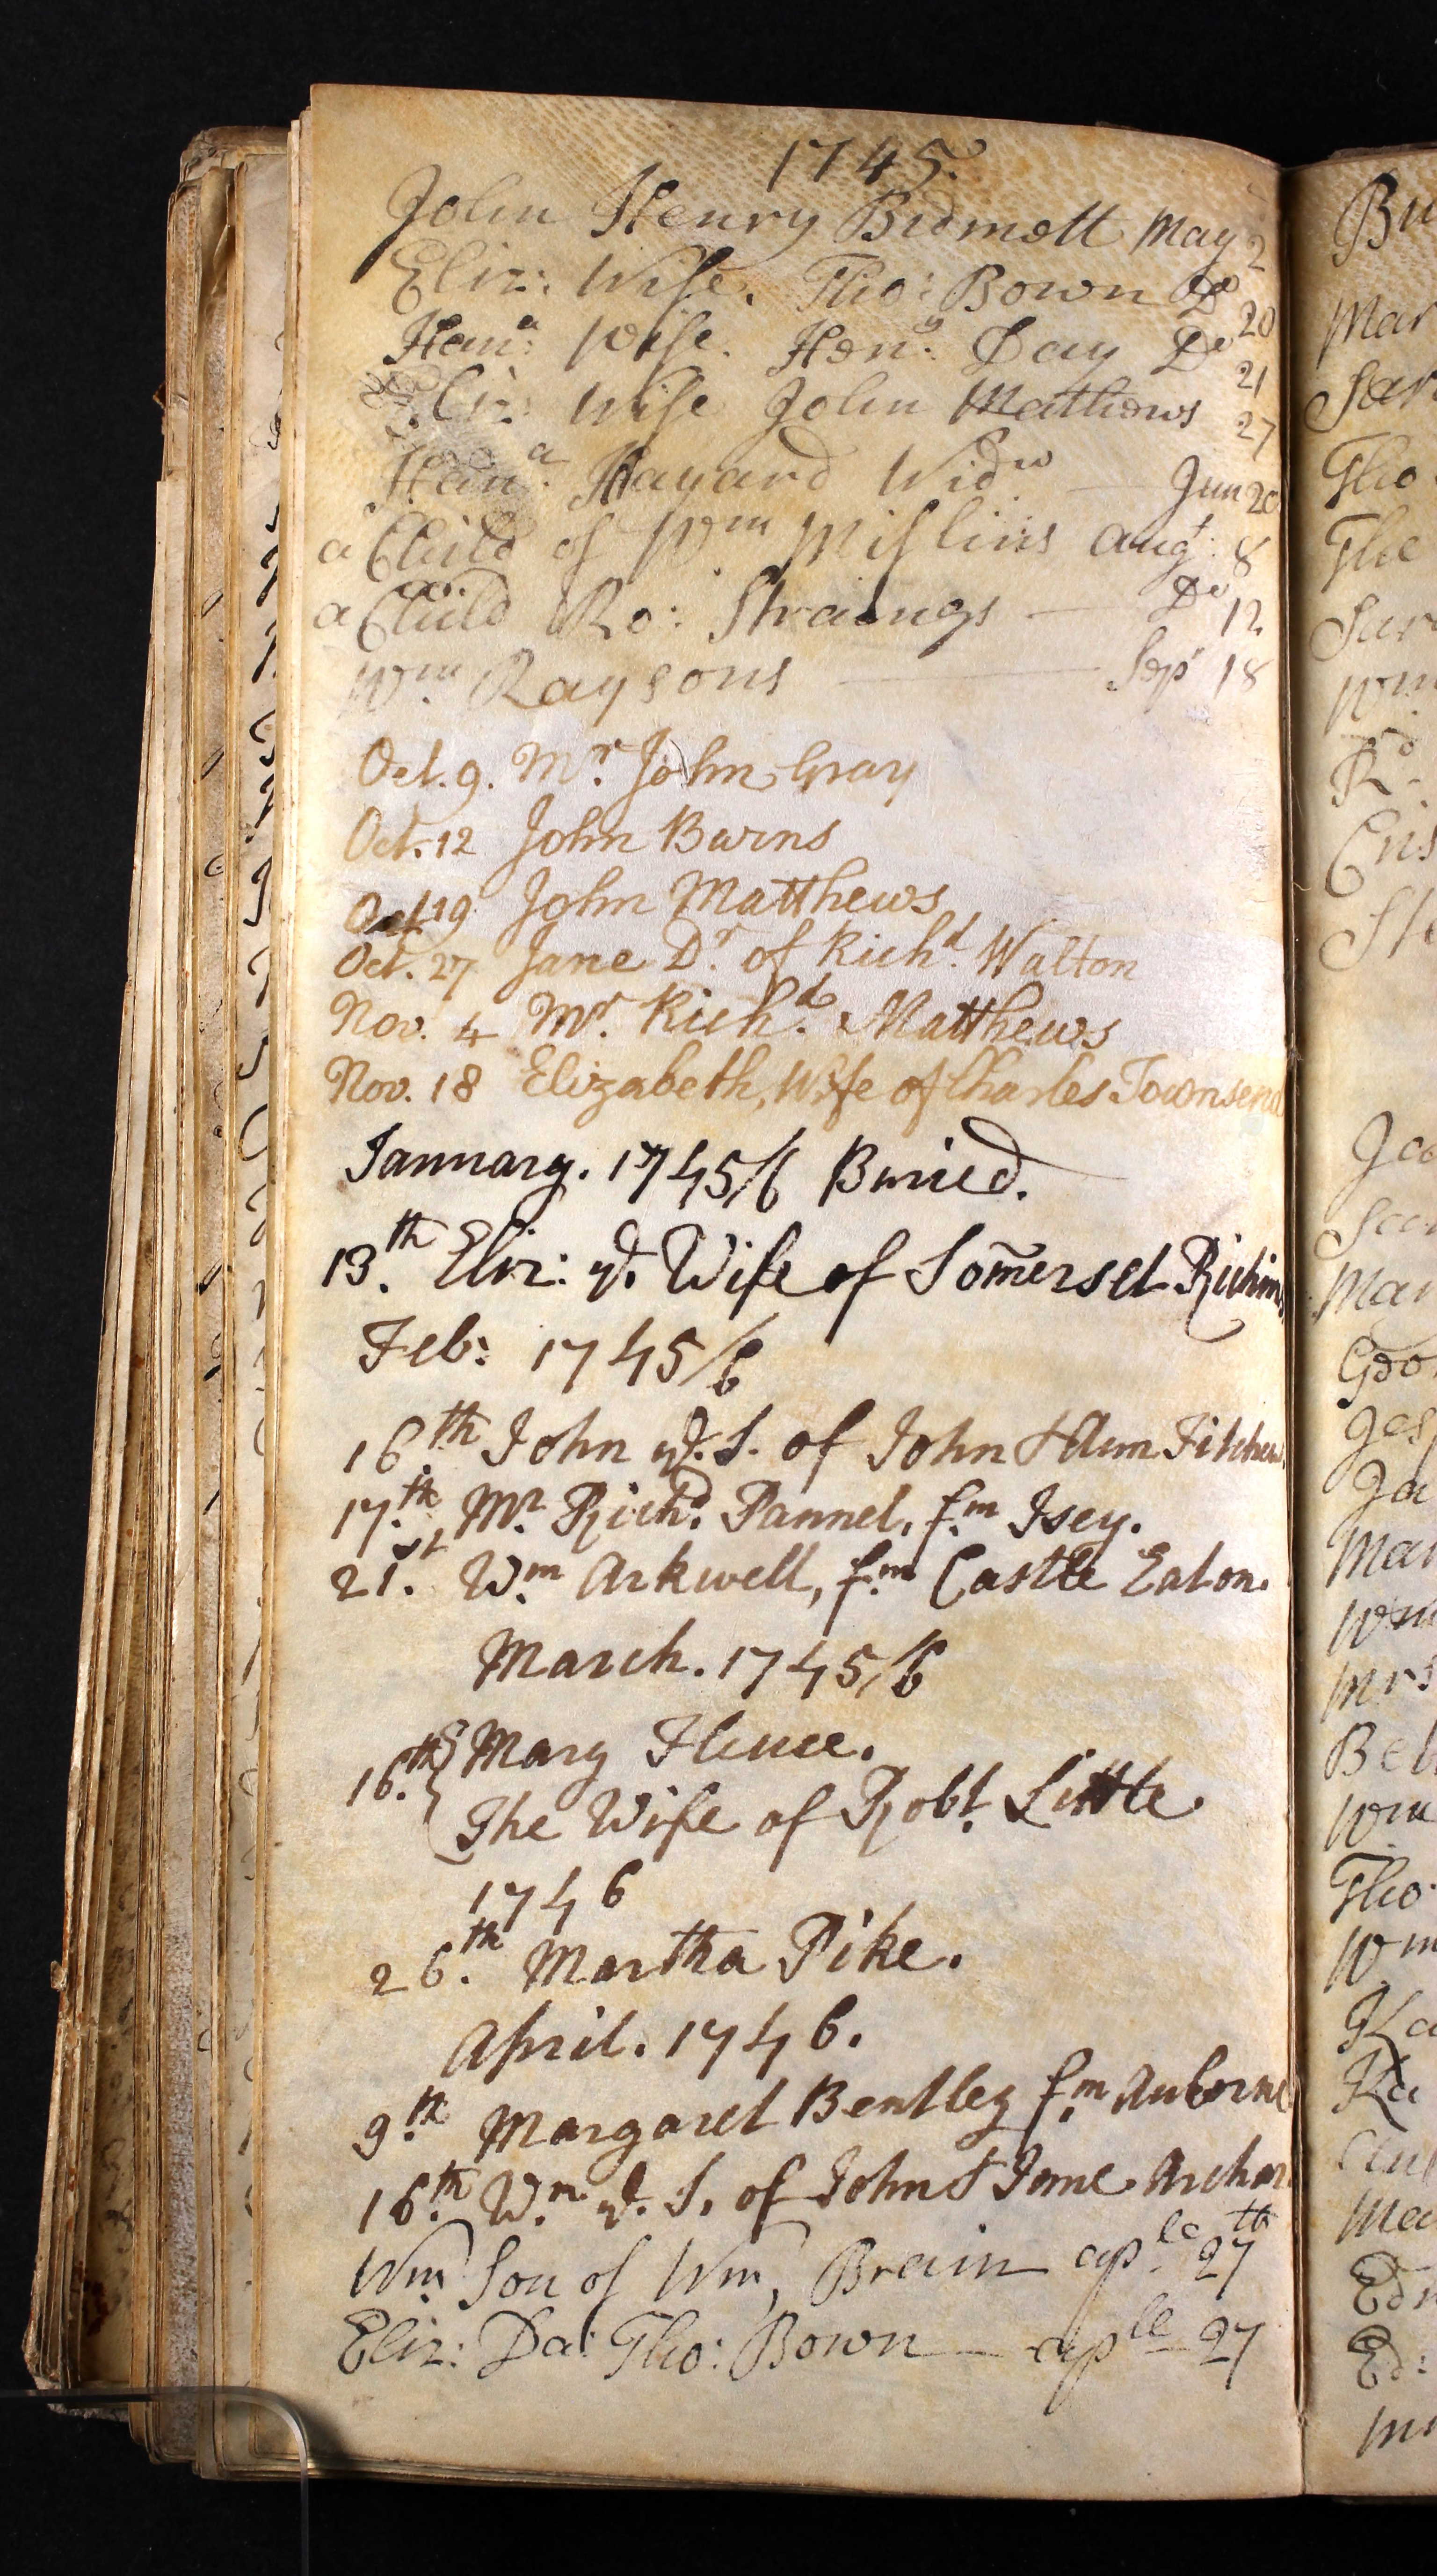 1745.
John Henry Bromett May 2
Eliz: Wife. Tho: Bown Do 20
Han:a Wife. Hen:y Day Do 21
Eliz: Wife John Mathews 27
Han:a Hayard Widw — Jun 20
a Child of Wm Miflins Augt: 8
a Child Ro: Strangs — Do 12
Wm Raysons — Sepr 18
Oct. 9. Mr. John Gray
Oct. 12 John Burns
Oct 19 John Matthews
Oct. 27 Jane Dr. of Richd. Walton
Nov. 4 Mr. Richd. Matthews
Nov. 18 Elizabeth, Wife of Charles Townsend
January. 1745/6 Buried.
13.th Eliz: ye. Wife of Som̃erset
Feb: 1745/6
16.th John ye. S. of John & Ann
17.th Mr. Richd. Pannel, fm. Isey.
21.st Wm. Arkwell, fm. Castle Eaton.
March. 1745/6
16.th { Mary
The Wife of Robt. Little
1746
26.th Martha Pike.
April. 1746.
9.th Margaret Bentley fm. Auborne
16.th Wm. ye. S. of John & Jane Archer
Wm Son of Wm, Brain aple 27th
Eliz: Da: Tho: Bown — aple 27
Bu
Mar
Sar
Tho
The
Sar
Wm
Rd
Man
Geo
Ja
Mar
Wm
Mrs
Wm
Tho
Wm
Ka
Ka
Ed
Ed: